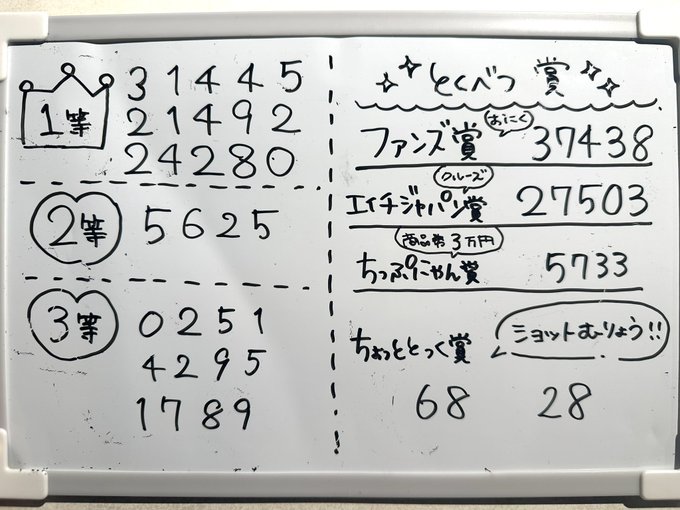 1等
31445
21492
24280
2等
5625
3等
0251
4295
1789
とくべつ 賞
おにく
ファンズ賞 37438
クルーズ
エイチジャパン賞 27503
商品券 3万円
ちっぷにゃん賞 5733
ちょっととっく賞
ショットむりょう!!
68 28